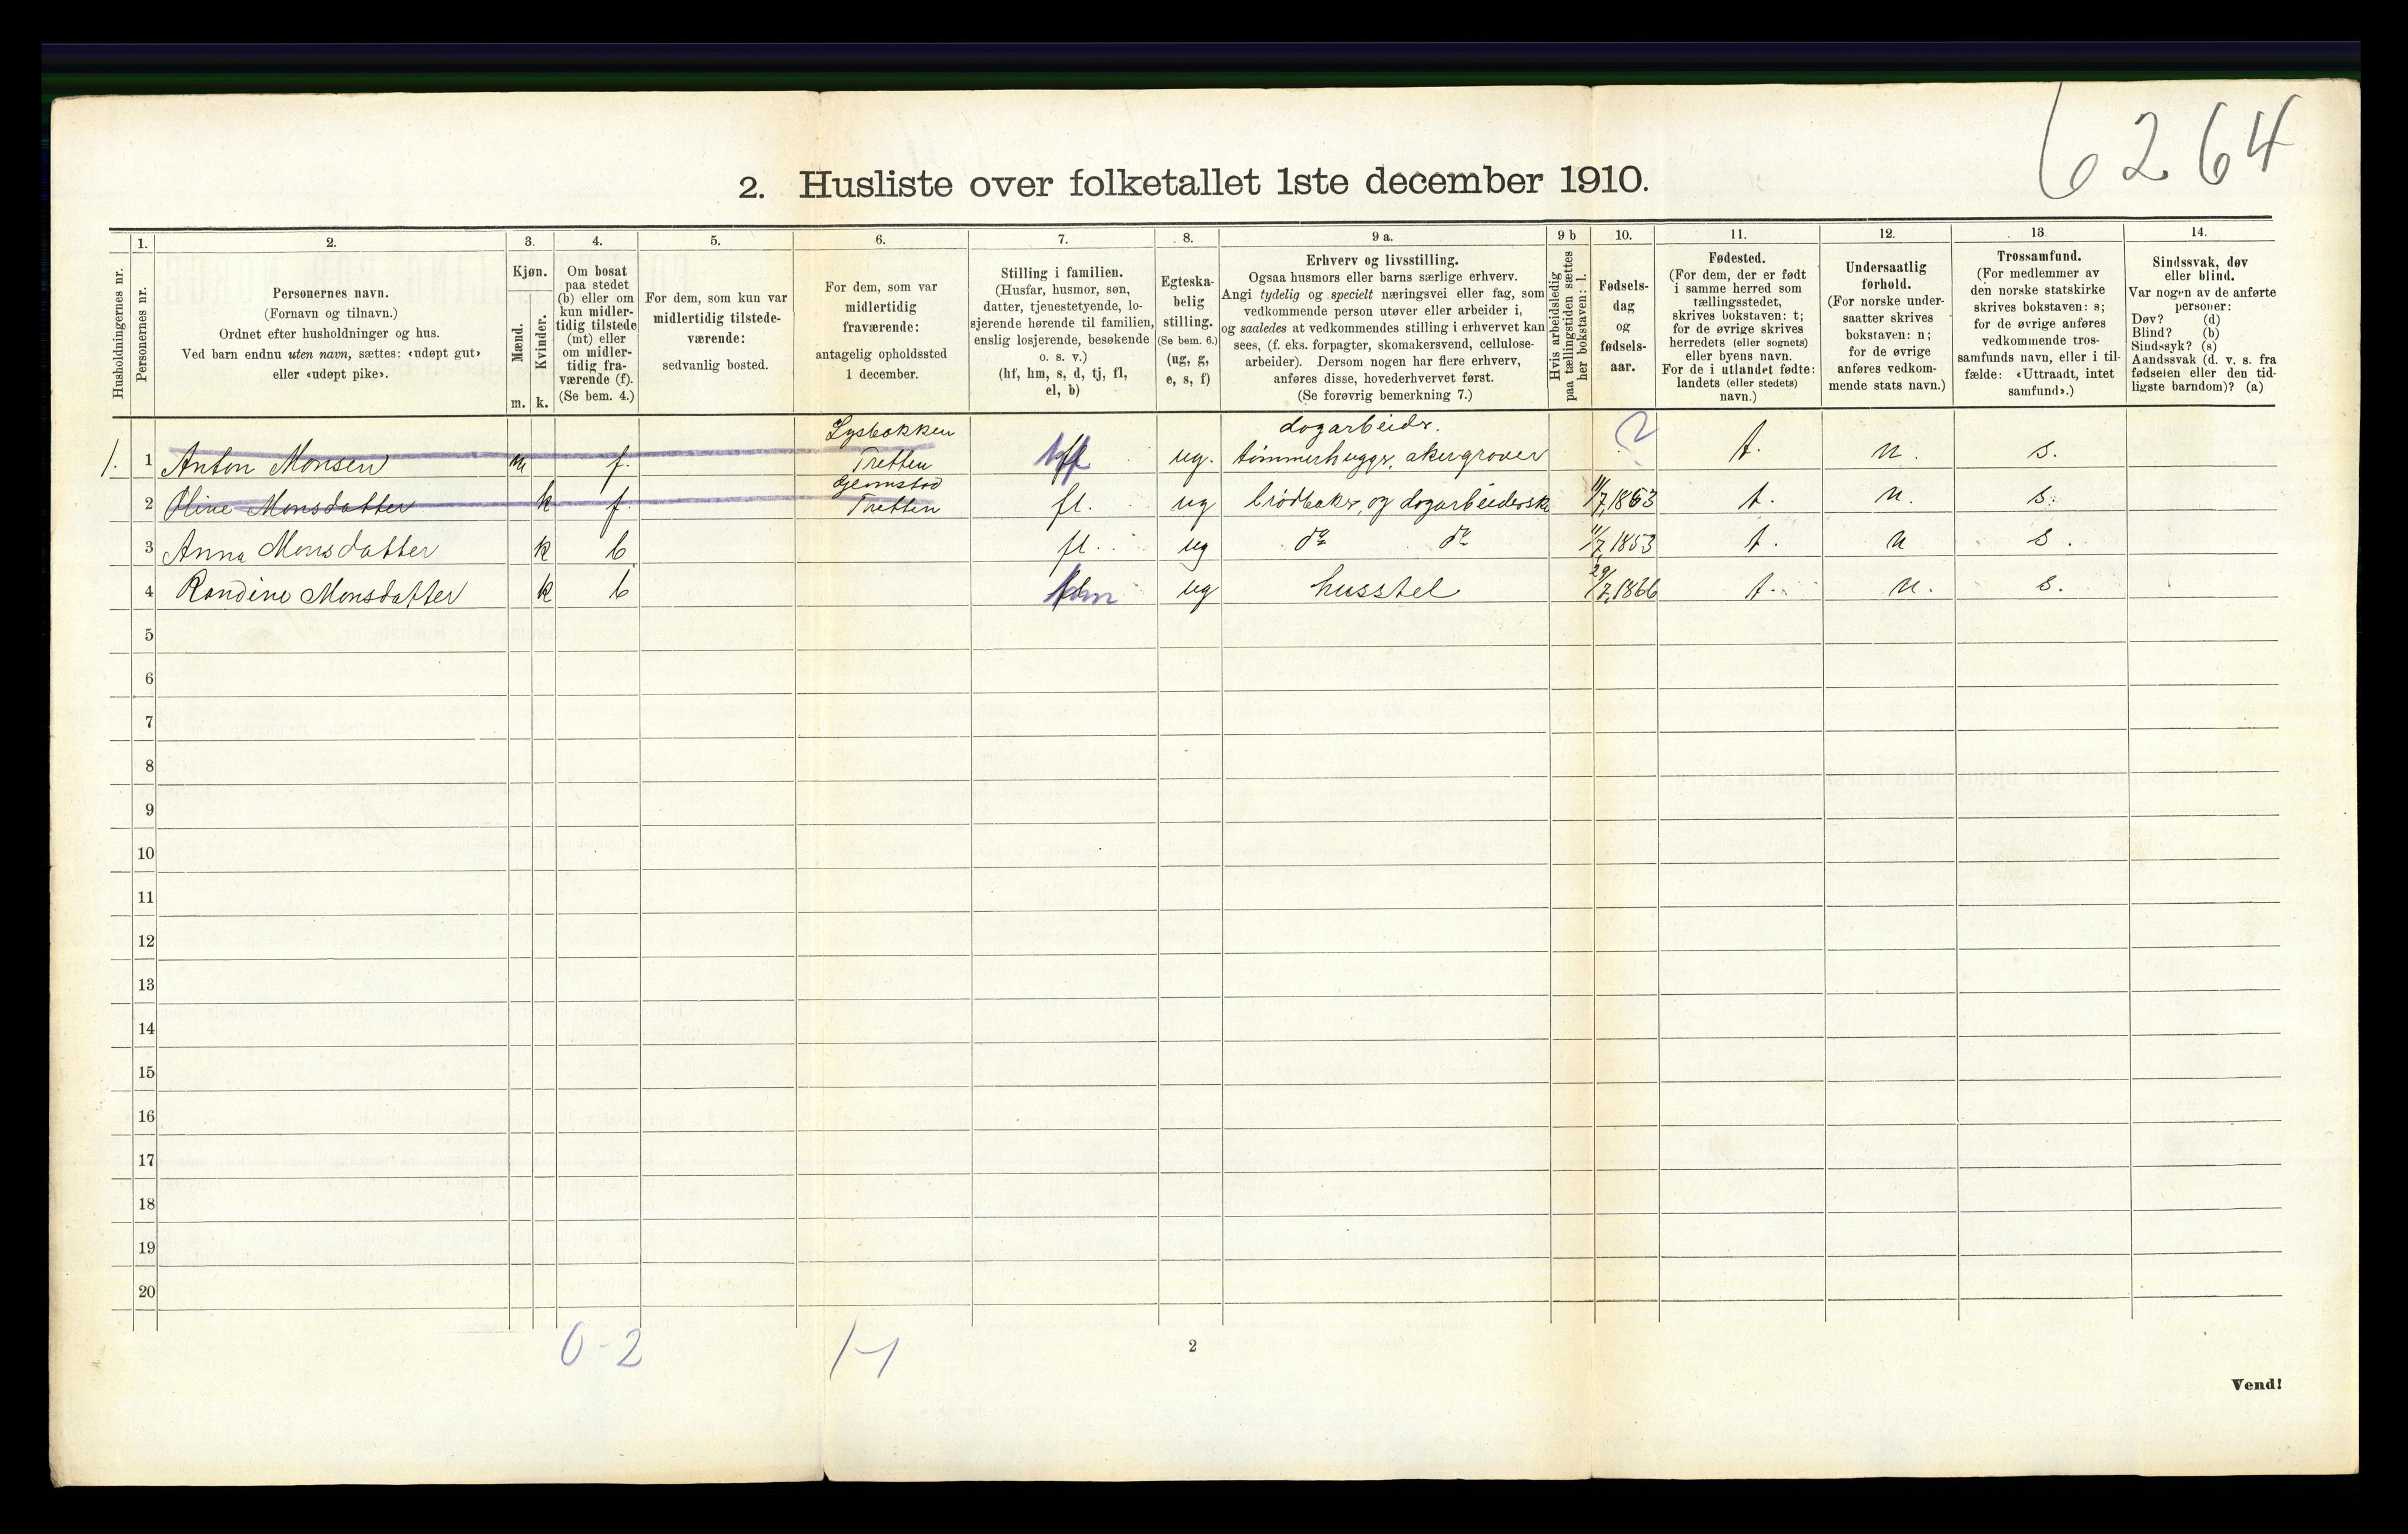 6264
2. Husliste over folketallet 1ste december 1910.
Husholdningernes nr.
1.
Personernes nr.
2.
Personernes navn.
(Fornavn og tilnavn.)
Ordnet efter husholdninger og hus.
Ved barn endnu uten navn, sættes: «udøpt gut»
eller «udøpt pike».
3.
Kjøn.
Mænd.
Kvinder.
m.
k.
4.
Om bosat
paa stedet
(b) eller om
kun midler-
tidig tilstede
(mt) eller
om midler-
tidig fra-
værende (f).
(Se bem. 4.)
5.
For dem, som kun var
midlertidig tilstede-
værende:
sedvanlig bosted.
6.
For dem, som var
midlertidig
fraværende:
antagelig opholdssted
1 december.
7.
Stilling i familien.
(Husfar, husmor, søn,
datter, tjenestetyende, lo-
sjerende hørende til familien,
enslig losjerende, besøkende
o. s. v.)
(hf, hm, s, d, tj, fl,
el, b)
8.
Egteska-
belig
stilling.
(Se bem. 6.)
(ug, g,
e, s, f)
9 a.
Erhverv og livsstilling.
Ogsaa husmors eller barns særlige erhverv.
Angi tydelig og specielt næringsvei eller fag, som
vedkommende person utøver eller arbeider i,
og saaledes at vedkommendes stilling i erhvervet kan
sees, (f. eks. forpagter, skomakersvend, cellulose-
arbeider). Dersom nogen har flere erhverv,
anføres disse, hovederhvervet først.
(Se forøvrig bemerkning 7.)
9 b
Hvis arbeidsledig
paa tællingstiden sættes
her bokstaven: l.
10.
Fødsels-
dag
og
fødsels-
aar.
11.
Fødested.
(For dem, der er født
i samme herred som
tællingsstedet,
skrives bokstaven: t;
for de øvrige skrives
herredets (eller sognets)
eller byens navn.
For de i utlandet fødte:
landets (eller stedets)
navn.)
12.
Undersaatlig
forhold.
(For norske under-
saatter skrives
bokstaven: n;
for de øvrige
anføres vedkom-
mende stats navn.)
13
Trossamfund.
(For medlemmer av
den norske statskirke
skrives bokstaven: s;
for de øvrige anføres
vedkommende tros-
samfunds navn, eller i til-
fælde: «Uttraadt, intet
samfund».)
14.
Sindssvak, døv
eller blind.
Var nogen av de anførte
personer:
Døv? (d)
Blind? (b)
Sindssyk? (s)
Aandssvak (d. v. s. fra
fødselen eller den tid-
ligste barndom)? (a)
Lysbakken dogarbeidr.
1. 1 Anton Monsen m f. Tretten ug. tømmerhuggr, akergraver ? t. n. s.
2 Oline Monsdatter k f. Tretten fl. ug brödbakr, og dogarbeiderske 11/7,1853 t. n. s.
3 Anna Monsdatter k b fl. ug do do 11/7,1853 t. n s.
4 Randine Monsdatter k b hm ug husstel 29/7,1866 t. n. s.
5
6
7
8
9
10
11
12
13
14
15
16
17
18
19
20
0-2
2
Vend!